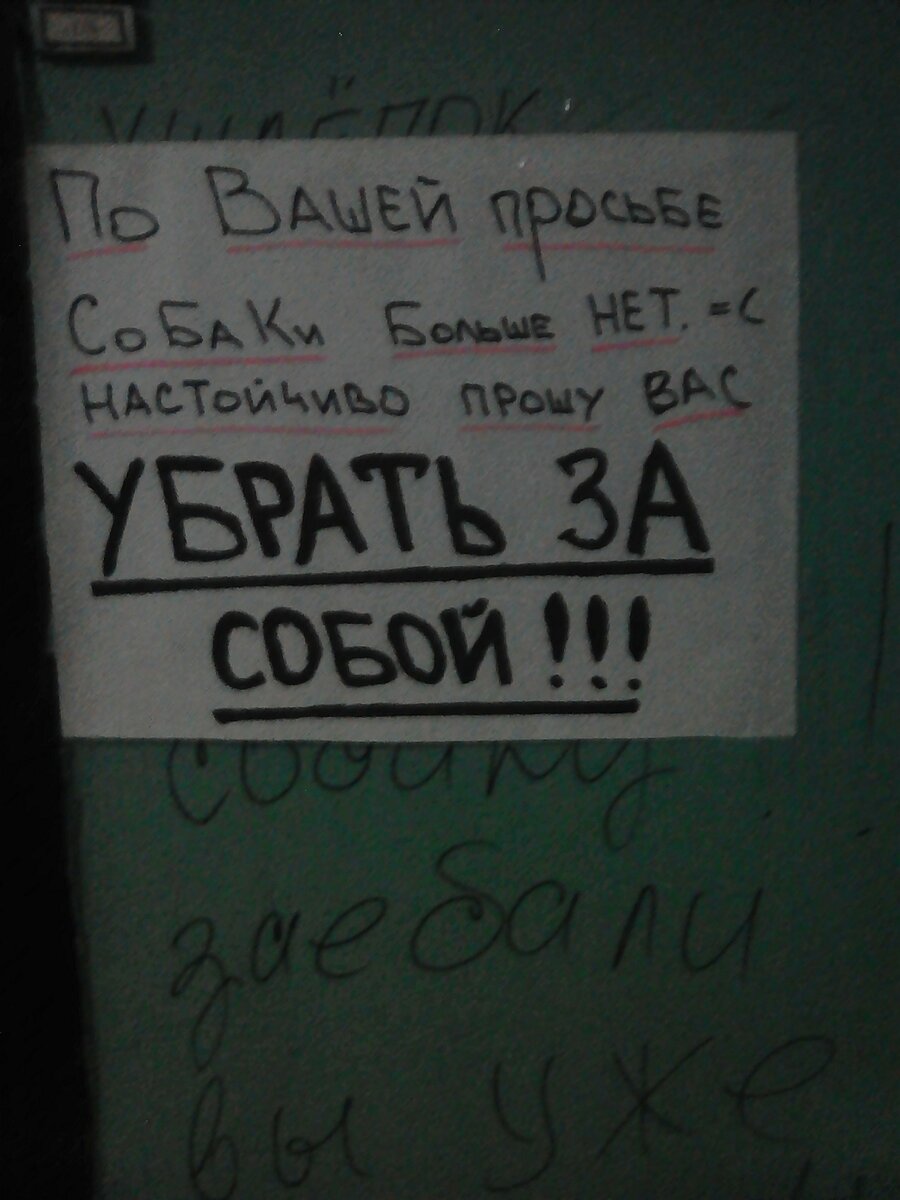 По ВАШЕЙ просьбе
Собаки больше НЕТ. =С
НАСТойчиво прошу ВАС
УБРАТЬ ЗА
СОБОЙ!!!
собаку
заебали
вы уже